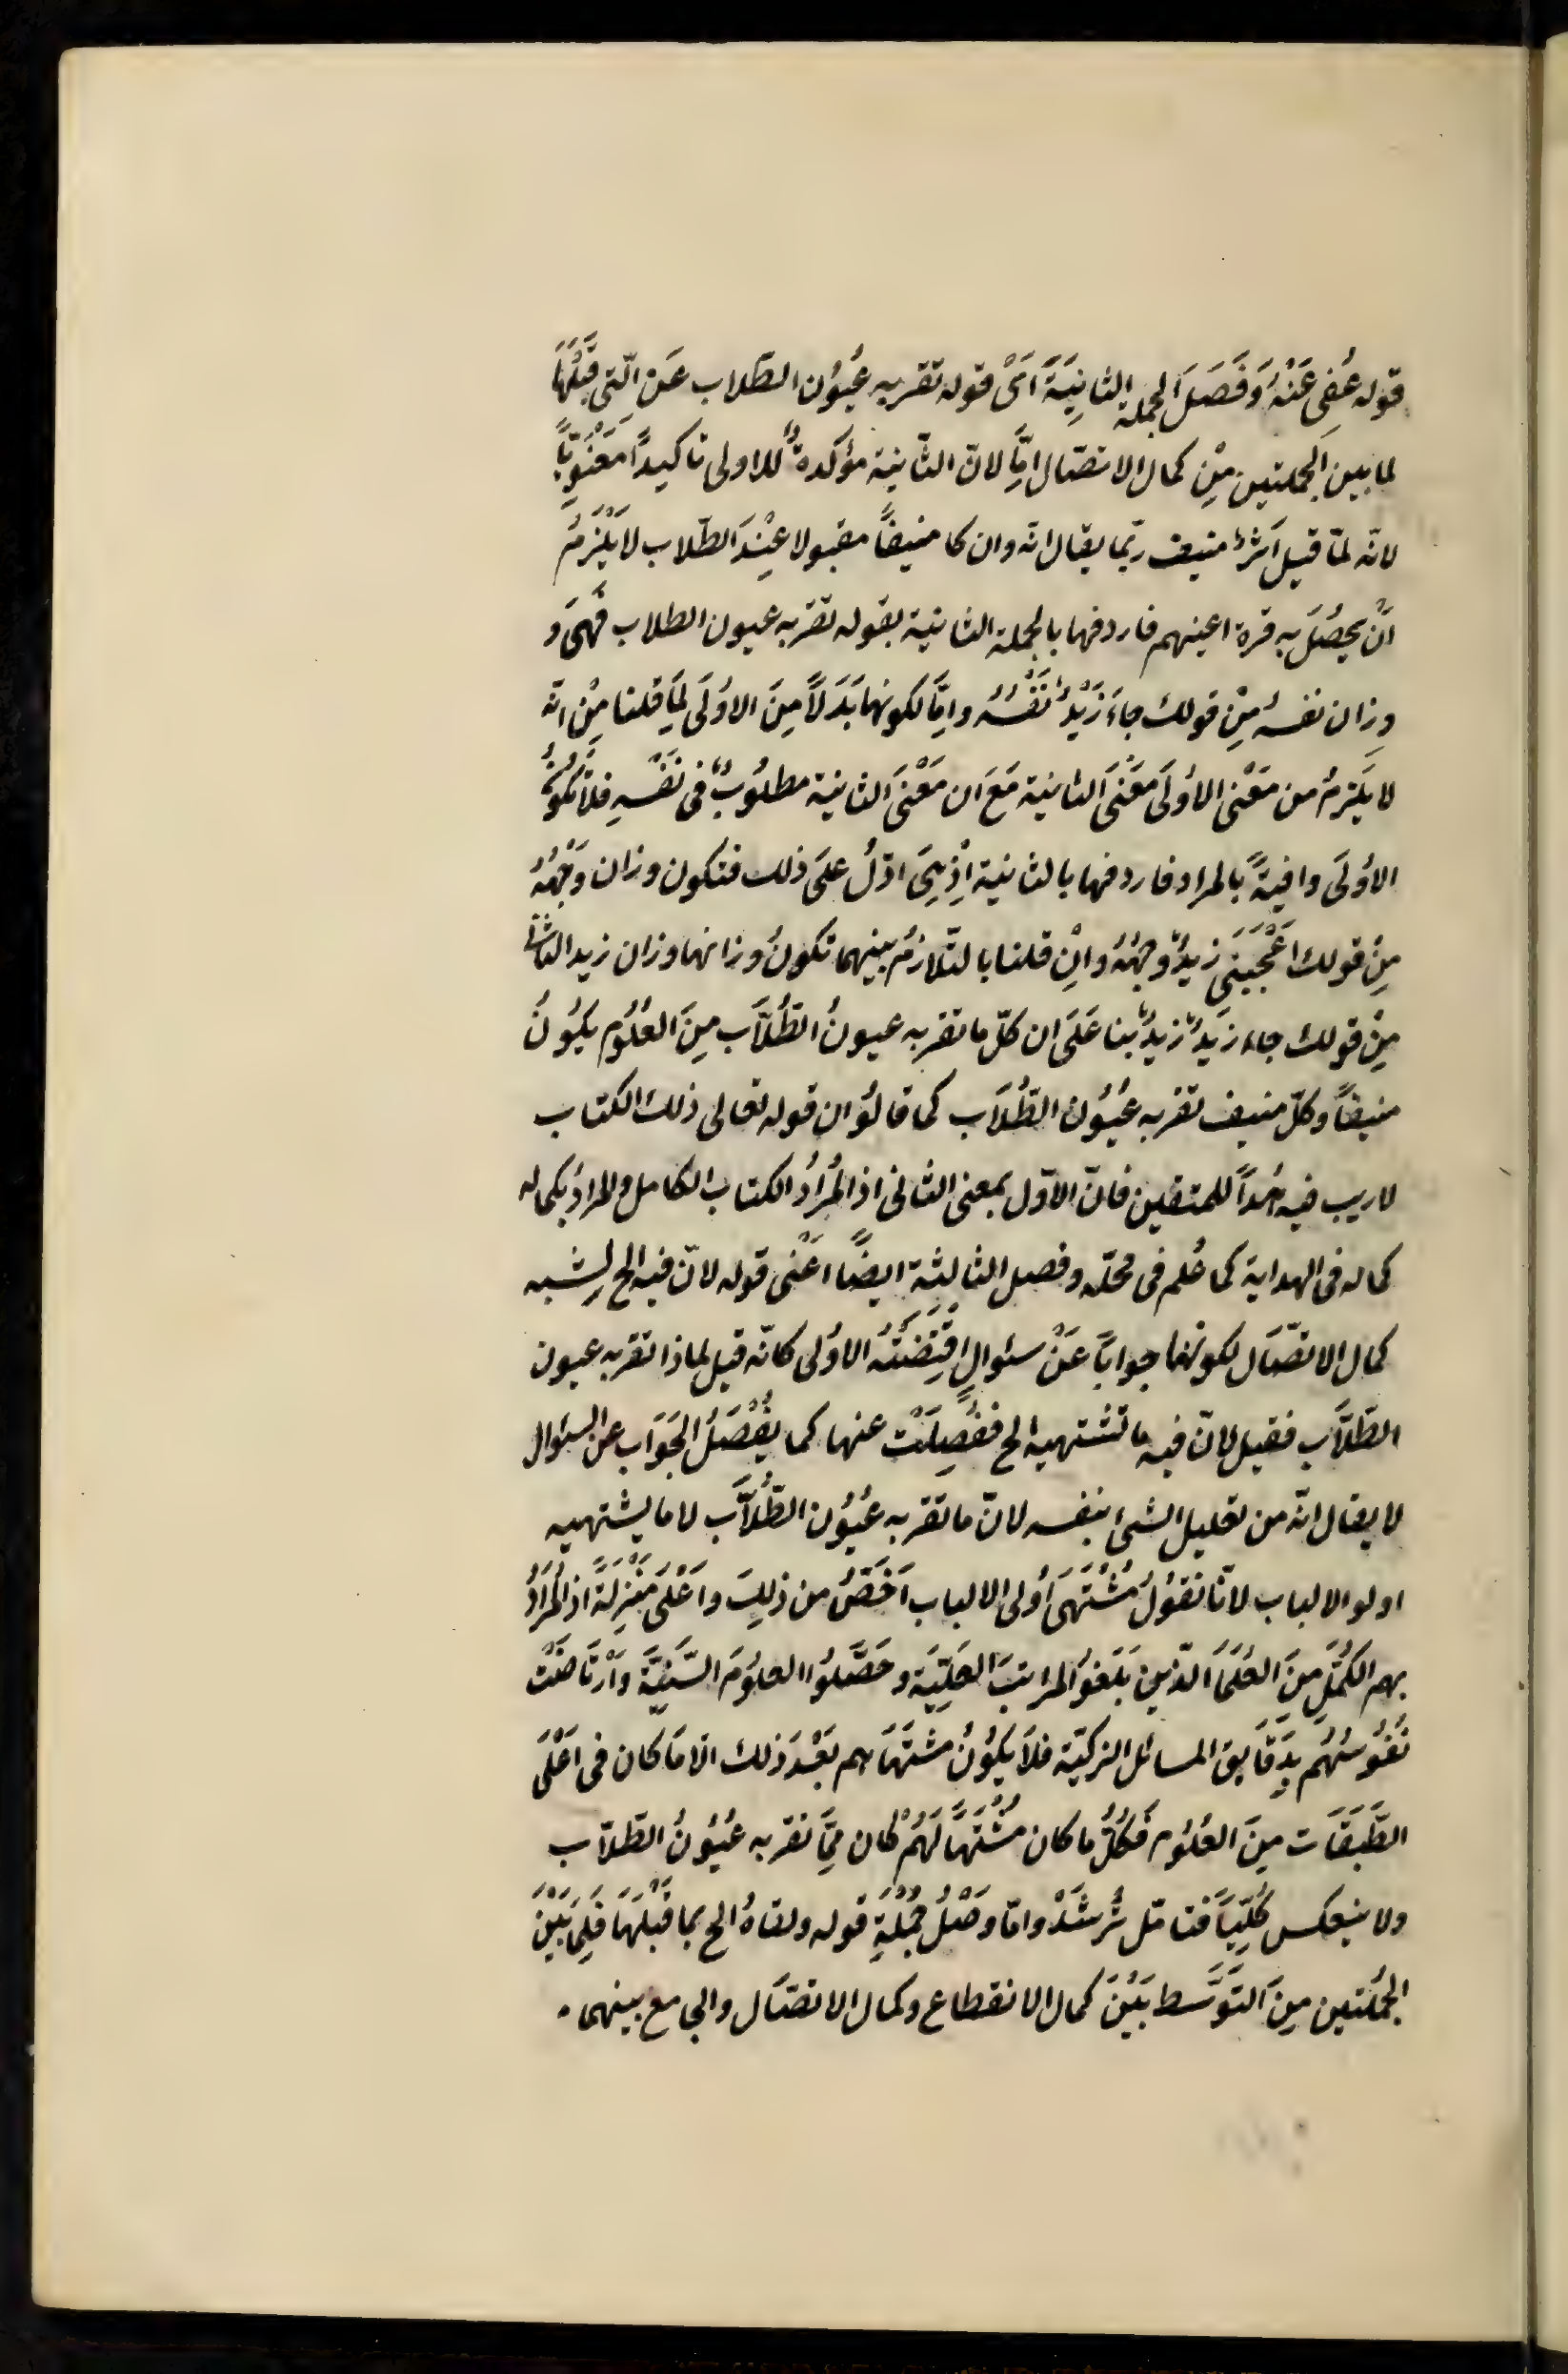 قوله عُفِى عَنْهُ وَفَصَلَ الجملة الثانِيَةَ اَىْ قوله تقر به عُيُوُن الطّلاب عَنِ الّتى قَبْلَهَا
لما بين الجملتين مِنْ كمال الاتصّال امِّا لانّ الثّانية مؤكدةٌ للاولى تاكيداً مَعْنَوِيّاً
لانّه لمّا قيل اَثرٌ منيف ربّما يقال انّه وان كا منيفاً مقبولا عِنْدَ الطّلاب لا يَلْزَمُ
اَنْ يحصُلَ به قرة اعينهم فاردفها بالجملة الثانية بقوله تقرّبه عيون الطلاب فَهِىَ وَ
وزان نفسهُ مِنْ قولك جاءَ زَيْدٌ نَفْسُهُ واِمَّا لكونها بَدَلاً مِنَ الاوُلَى لِمَا قلنا مِنْ انّه
لا يَلزمُ من مَعْنى الاُولَى مَعْنَى الثانية مَعَ ان مَعْنَى الثانية مطلوُبٌ فى نَفْسِهِ فلا تكوُنُ
الاوُلَى وافيةً بالمراد فاردفها بالثانية اِذْ هِىَ ادَلُّ علىَ ذلك فتكون وزان وَجْهُهُ
مِنْ قولك اَعْجَبَنِى زيدٌ وجههُ وانْ قلنا بالتّلازمُ بينهما تكونُ وزانها وزان زيد الثانى
مِنْ قولك جاء زَيدٌ زيدٌ بنا عَلَى ان كلّ ما تقر به عيونُ الطُّلاَّب مِنَ العُلُوُم يكوُنُ
منيفاً وكلّ منيف تقر به عُيُوُن الطُّلاَب كما قالوُا ان قوله تعالى ذلك الكتاب
لا ريب فيه هُداً للمتقين فانّ الاوّل بمعنى الثانى اذ المُرَادُ الكتاب الكامل والمرادُ بكماله
كماله فى الهداية كما عُلم فى محلّه وفصل الثالثة ايضاً اعْنى قوله لانّ فيه الخ لِشبه
كمال الاتصّال لكونها جواباً عَنْ سئوالٍ اقْتَضَتْهُ الاوُلى كانّه قيل لماذا تقر به عيون
الطّلاَّب فقيل لانّ فيه ما تشتهيه الخ ففُصِلَتْ عنها كما يُفْصَلُ الجَوَاب عن السئوال
لا يقال انّه من تعليل الشئ بنفسه لانّ ما تقر به عُيُوُن الطُّلاَّب لا ما يشتهيه
اولو الالباب لانّا نقوُلُ مُشْتَهَى اُولى الالباب اَخَصُّ من ذلِكَ واَعْلَى مَنْزِلَةً اذ المُرَادُ
بهم الكُمَّل مِنَ العُلَمَاَ الّذين بَلَغوُا المراتبَ العَلِيّةَ وحَصَّلوُا العلوُمَ السَّنِيَّةَ وَارْتَاضَتْ
نُفُوُسُهُم بِدَقَايق المسائل الزكيّة فلاَ يكوُنُ مشتَهَاهم بَعْدَ ذلك الاّ مَا كان فى اَعْلَى
الطَّبَقَات مِنَ العُلوُم فَكُلُّ ما كان مُشْتَهاً لَهُمْ كان مِمَّا تقرّ به عُيُوُنُ الطّلاّب
ولا ينعكس كُلِّيّاً فتامّل تُرْشَدْ وامّا وَصْلُ جُمْلَةِ قوله ولقاهُ الخ بما قَبْلَهَا فَلِمَا بَيْنَ
الجُملتين مِنَ التَّوَسَّط بَيْنَ كمال الانقطاع وكمال الاتصّال والجامع بينهما ۰